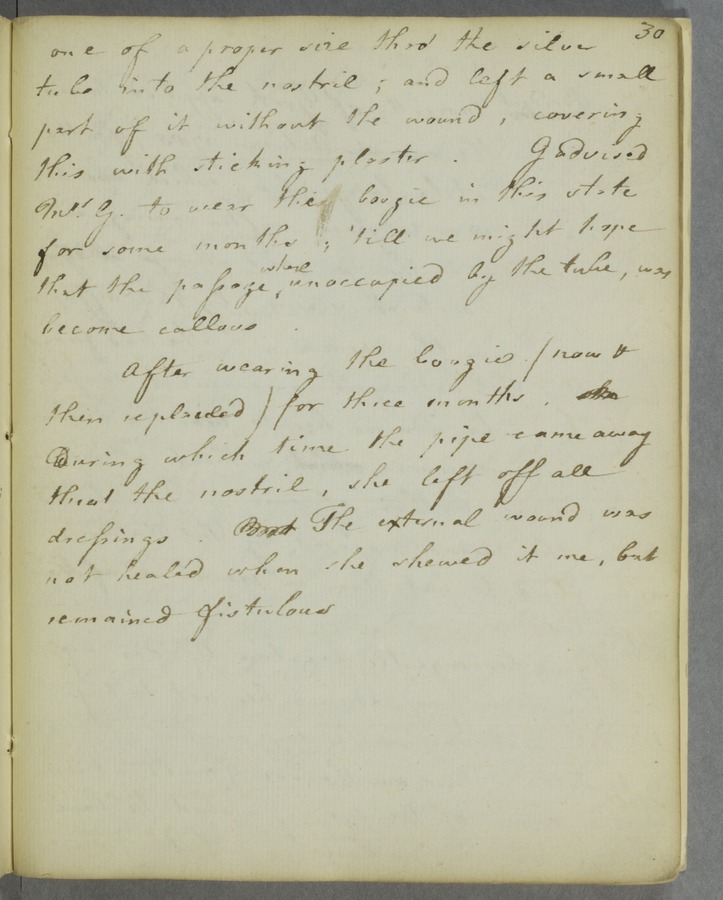 30
one of a proper size thro' the silver
tube into the nostril; and left a small
part of it without the wound, covering
this with sticking plaster. I advised
Mrs. G. to wear the bougie in this state
for some months; 'till we might hope
that the passage, where unoccupied by the tube, was
become callous.
After wearing the bougie (now &
then replaced) for three months.
During which time the pipe came away
thro' the nostril, she left off all
dressings. But The external wound was
not healed when she shewed it me, but
remained fistulous